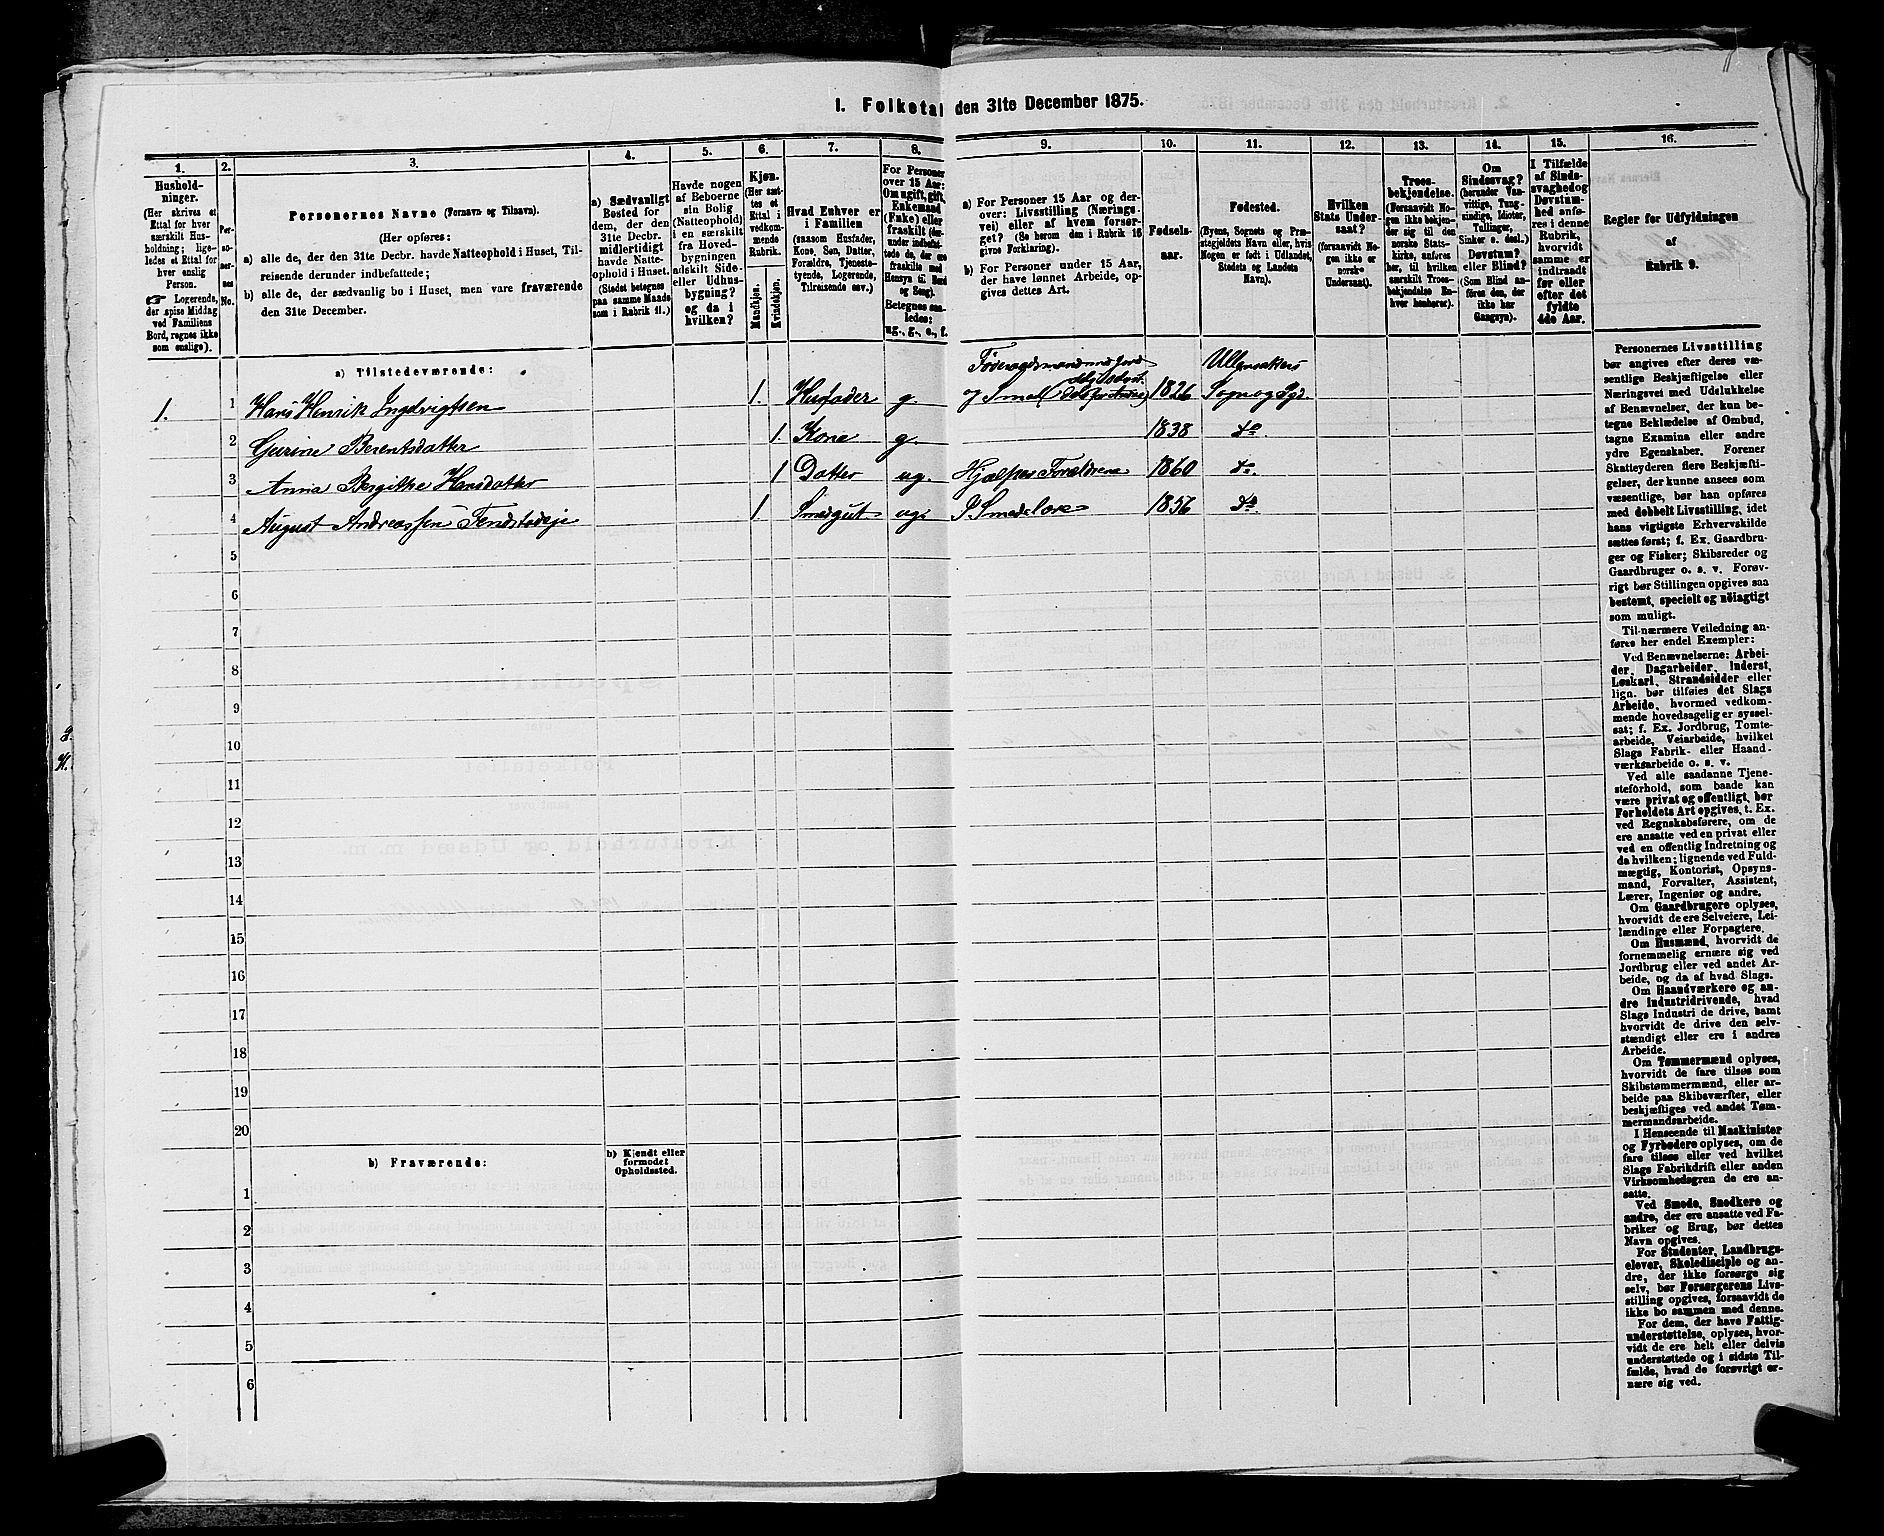 1. Folketæ den 31te December 1875.
1.
2.
3.
4.
5.
6.
7.
8.
9.
10.
11.
12.
13.
14.
15.
16.
Hushold-
ninger.
(Her skrives et
Ettal for hver
særskilt Hus-
holdning; lige-
ledes et Ettal for
hver enslig
Person.
☞ Logerende,
der spise Middag
ved Familiens
Bord, regnes ikke
som enslige).
Per-
so-
ner-
nes
No.
Personernes Navne (Fornavn og Tilnavn).
(Her opføres:
a) alle de, der den 31te Decbr. havde Natteophold i Huset, Til-
reisende derunder indbefattede;
b) alle de, der sædvanlig bo i Huset, men vare fraværende
den 31te December.
a) Sædvanligt
Bosted for
dem, der den
31te Decbr.
midlertidigt
havde Natte-
ophold i Huset.
(Stedet betegnes
paa samme Maade
som i Rubrik 11.)
Havde nogen
af Beboerne
sin Bolig
(Natteophold)
i en særskilt
fra Hoved-
bygningen
adskilt Side-
eller Udhus-
bygning?
og da i
hvilken?
Kjøn.
(Her sæt-
tes et
Ettal i
vedkom-
mende
Rubrik.
Mandkjøn.
Kvindekjøn.
Hvad Enhver er
i Familien
(saasom Husfader,
Kone, Søn, Datter,
Forældre, Tjeneste-
tyende, Logerende,
Tilreisende osv.)
For Personer
over 15 Aar:
Om ugift, gift,
Enkemand
(Enke) eller
fraskilt (der-
under indbefat-
tede de, der ere
fraskilte med
Hensyn til Bord
og Seng).
Betegnes saa-
ledes:
ug., g., e., f.
a) For Personer 15 Aar og der-
over: Livsstilling (Nærings-
vei) eller af hvem forsør-
get? (Se herom den i Rubrik 16
givne Forklaring).
b) For Personer under 15 Aar,
der have lønnet Arbeide, op-
gives dettes Art.
Fødsels-
aar.
Fødested.
(Byens, Sognets og Præ-
stegjeldets Navn eller, hvis
Nogen er født i Udlandet,
Stedets og Landets
Navn).
Hvilken
Stats Under-
saat?
(forsaavidt No-
gen ikke er
norsk
Undersaat).
Troes-
bekjendelse.
(Forsaavidt No-
gen ikke bekjen-
der sig til den
norske Stats-
kirke, anføres
her, til hvilken
særskilt Troes-
bekjendelse En-
hver henhører).
Om
Sindssvag?
(herunder Van-
vittige, Tung-
sindige, Idioter,
Tullinger,
Sinker o. desl.)
Døvstum?
eller Blind?
(Som Blind an-
føres den, der
ikke har
Gangsyn).
I Tilfælde
af Sinds-
svaghed og
Døvstum-
hed anfø-
res i denne
Rubrik,
hvorvidt
samme er
indtraadt
før eller
efter det
fyldte
4de Aar.
Regler for Udfyldningen
af
Rubrik 9.
a) Tilstedeværende:
1. 1 Hans Henrik Ingdvigtsen 1. Husfader g. og Smed 1826 Ullensakers Sogn og Pgd.
2 Gurine Berentsdatter 1. Kone g. 1838 do.
3 Anna Bergitke Hansdatter 1 Datter ug. Hjælper Forældrene 1860 do.
4 August Andreassen 1. Smedgut ug. I Smedelære 1856 do.
5
6
7
8
9
10
11
12
13
14
15
16
17
18
19
20
b) Fraværende:
b) Kjendt eller
formodet
Opholdssted.
1
2
3
4
5
6
Personernes Livsstilling
bør angives efter deres væ-
sentlige Beskjæftigelse eller
Næringsvei med Udelukkelse
af Benævnelser, der kun be-
tegne Beklædelse af Ombud,
tagne Examina eller andre
ydre Egenskaber. Forener
Skatteyderen flere Beskjæfti-
gelser, der kunne ansees som
væsentlige, bør han opføres
med dobbelt Livsstilling, idet
hans vigtigste Erhvervskilde
sættes først; f. Ex. Gaardbru-
ger og Fisker; Skibsreder og
Gaardbruger o. s. v. Forøv-
rigt bør Stillingen opgives saa
bestemt, specielt og nøiagtigt
som muligt.
Til nærmere Veiledning an-
føres her endel Exempler:
Ved Benævnelserne: Arbei-
der, Dagarbeider, Inderst,
Løskarl, Strandsidder eller
lign. bør tilføies det Slags
Arbeide, hvormed vedkom-
mende hovedsagelig er syssel-
sat; f. Ex. Jordbrug, Tomte-
arbeide, Veiarbeide, hvilket
Slags Fabrik- eller Haand-
værksarbeide o. s. v.
Ved alle saadanne Tjene-
steforhold, som baade kan
være privat og offentligt, bør
Forholdets Art opgives, t. Ex.
ved Regnskabsførere, om de
ere ansatte ved en privat eller
ved en offentlig Indretning og
da hvilken; lignende ved Fuld-
mægtig, Kontorist, Opsyns-
mand, Forvalter, Assistent,
Lærer, Ingeniør og andre.
Om Gaardbrugere oplyses,
hvorvidt de ere Selveiere, Lei-
lændinge eller Forpagtere.
Om Husmænd, hvorvidt de
fornemmelig ernære sig ved
Jordbrug eller ved andet Ar-
beide, og da af hvad Slags.
Om Haandværkere og an-
dre Industridrivende, hvad
Slags Industri de drive, samt
hvorvidt de drive den selv-
stændigt eller ere i andres
Arbeide.
Om Tømmermænd oplyses,
hvorvidt de fare tilsøs som
Skibstømmermænd, eller ar-
beide paa Skibsværfter, eller
beskjæftiges ved andet Tøm-
mermandsarbeide.
I Henseende til Maskinister
og Fyrbødere oplyses, om de
fare tilsøs eller ved hvilket
Slags Fabrikdrift eller anden
Virksomhedsgren de ere an-
satte.
Ved Smede, Snedkere og
andre, der ere ansatte ved Fa-
briker og Brug, bør dettes
Navn opgives.
For Studenter, Landbrugs-
elever, Skoledisciple og an-
dre, der ikke forsørge sig
selv, bør Forsørgerens Livs-
stilling opgives, forsaavidt de
ikke bo sammen med denne.
For dem, der have Fattig-
understøttelse, oplyses, hvor-
vidt de ere helt eller delvis
understøttede og i sidste Til-
fælde, hvad de forøvrigt er-
nære sig ved.